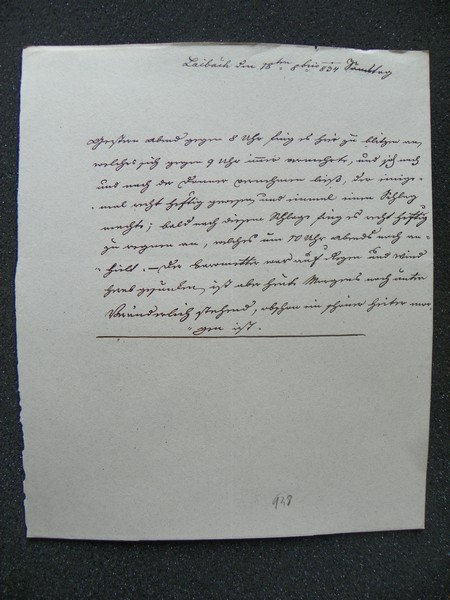 Laibach den 18ten 8bris 834 Samstag
Gestern abend gegen 8 Uhr fing es hier zu blitzen an,
welches sich gegen 9 Uhr immer vermehrte, und sich nach
und nach der Donner vernehmen ließ, der einige-
mal recht heftig gewesen, und einmal einen Schlag
machte; bald nach diesem Schlage fing es recht heftig
zu regnen an, welches um 10 Uhr abends noch an-
hielt. – Der Barometter war auf Regen und Wind
herab gesunken, ist aber heute Morgens noch unter
Veränderlich stehend, obschon ein schöner heiter mor-
gen ist.
928